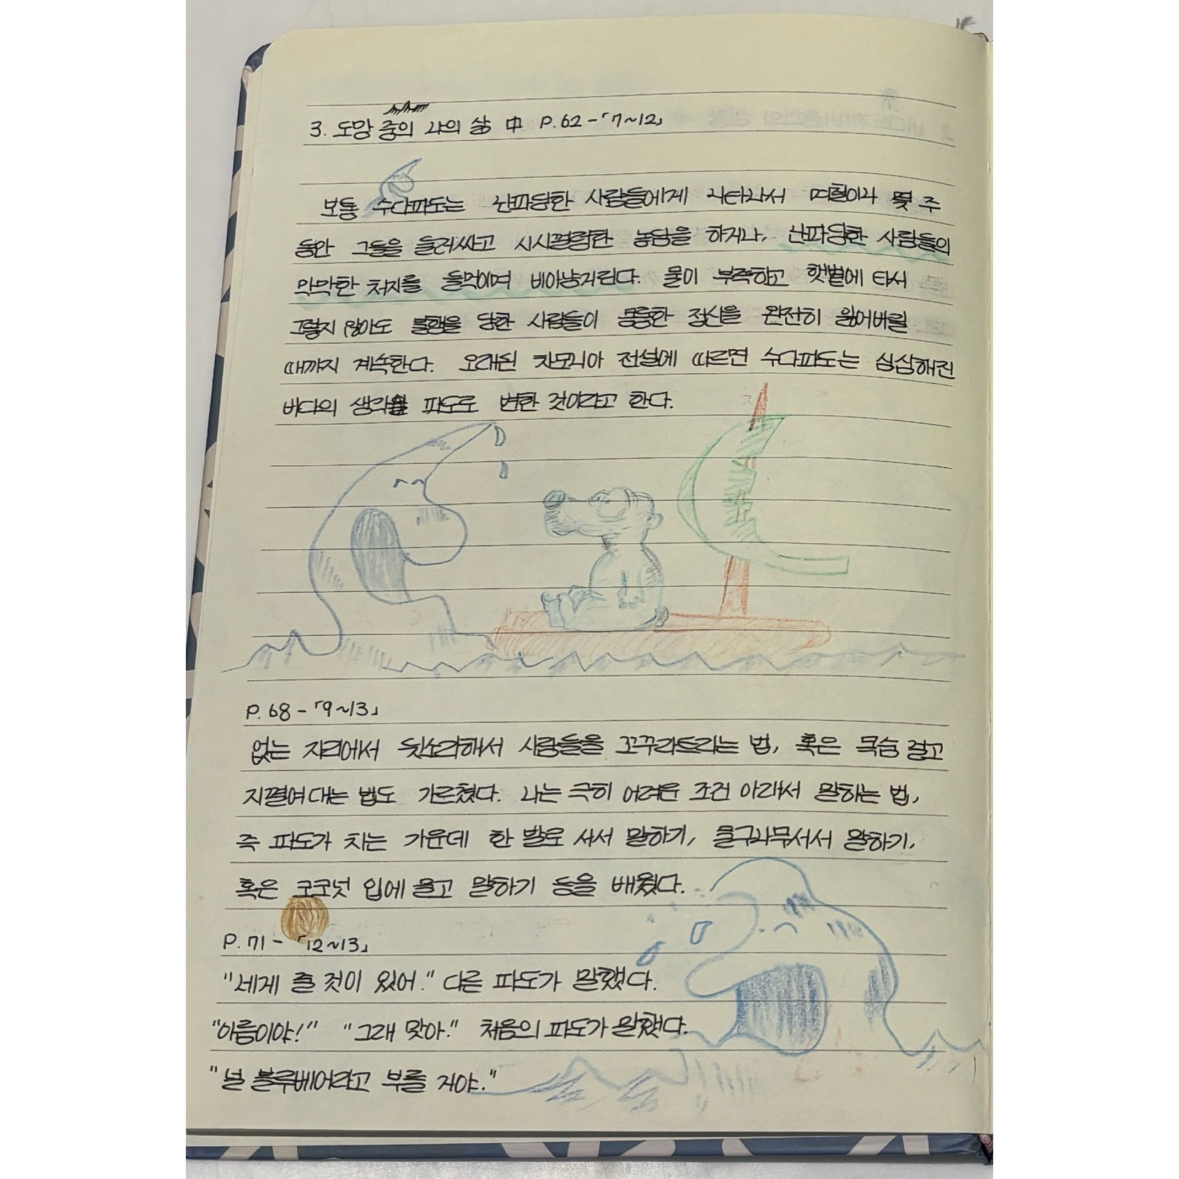 3. 도망 중의 나의 삶 中 P.62-「7~12」
보통 수다파도는 난파당한 사람들에게 나타나서 며칠이나 몇 주
동안 그들을 둘러싸고 시시껄렁한 농담을 하거나, 난파당한 사람들의
막막한 처지를 들먹이며 비아냥거린다. 물이 부족하고 햇볕에 타서
그렇지 않아도 불행을 당한 사람들이 몽롱한 정신을 완전히 잃어버릴
때까지 계속한다. 오래된 차모니아 전설에 따르면 수다파도는 심심해진
바다의 생각을 파도로 변한 것이라고 한다.
P.68-「9~13」
없는 자리에서 뒷소리해서 사람들을 꼬꾸라트리는 법, 혹은 목숨 걸고
지껄여대는 법도 가르쳤다. 나는 극히 어려운 조건 아래서 말하는 법,
즉 파도가 치는 가운데 한 발로 서서 말하기, 물구나무서서 말하기,
혹은 코코넛 입에 물고 말하기 등을 배웠다.
P.71-「12~13」
"네게 줄 것이 있어." 다른 파도가 말했다.
"이름이야!" "그래 맞아." 처음의 파도가 말했다.
"널 블루베어라고 부를 거야."